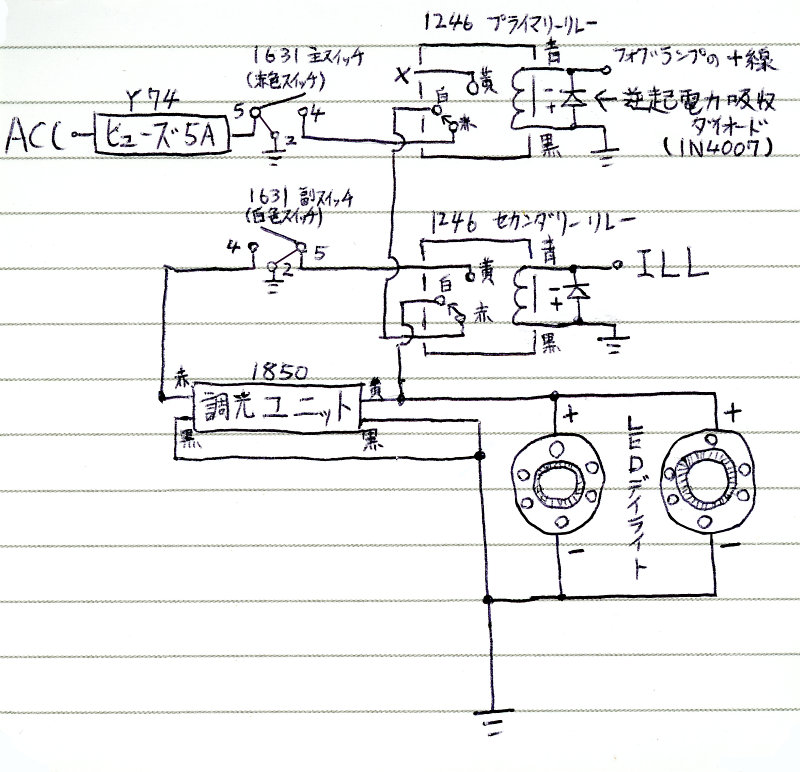 1246 プライマリーリレー
1631 主スイッチ
(赤色スイッチ)
青
フォグランプの+線
Y74
5
4
2
×
黄
白
赤
-
+
←逆起電力吸収
ダイオード
(1N4007)
ACC
ヒューズ5A
黒
1631 副スイッチ
(白色スイッチ)
1246 セカンダリーリレー
青
4
5
2
黄
ILL
白
赤
-
+
黒
1850
赤
調光ユニット
黄
黒
黒
+
+
LEDデイライト
-
-